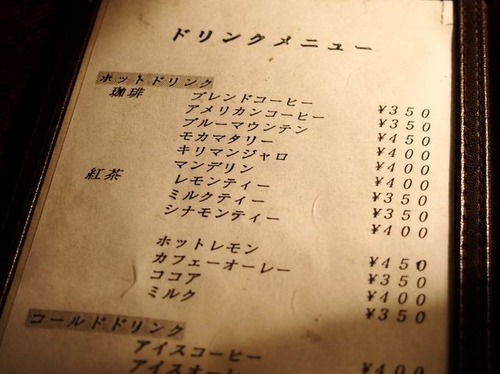 ドリンクメニュー
ホットドリンク
珈琲 ブレンドコーヒー ¥350
アメリカンコーヒー ¥350
ブルーマウンテン ¥450
モカマタリー ¥400
キリマンジャロ ¥400
マンデリン ¥400
紅茶 レモンティー ¥350
ミルクティー ¥350
シナモンティー ¥400
ホットレモン ¥450
カフェーオーレー ¥400
ココア ¥400
ミルク ¥350
コールドドリンク
アイスコーヒー ¥400
アイスオーレ